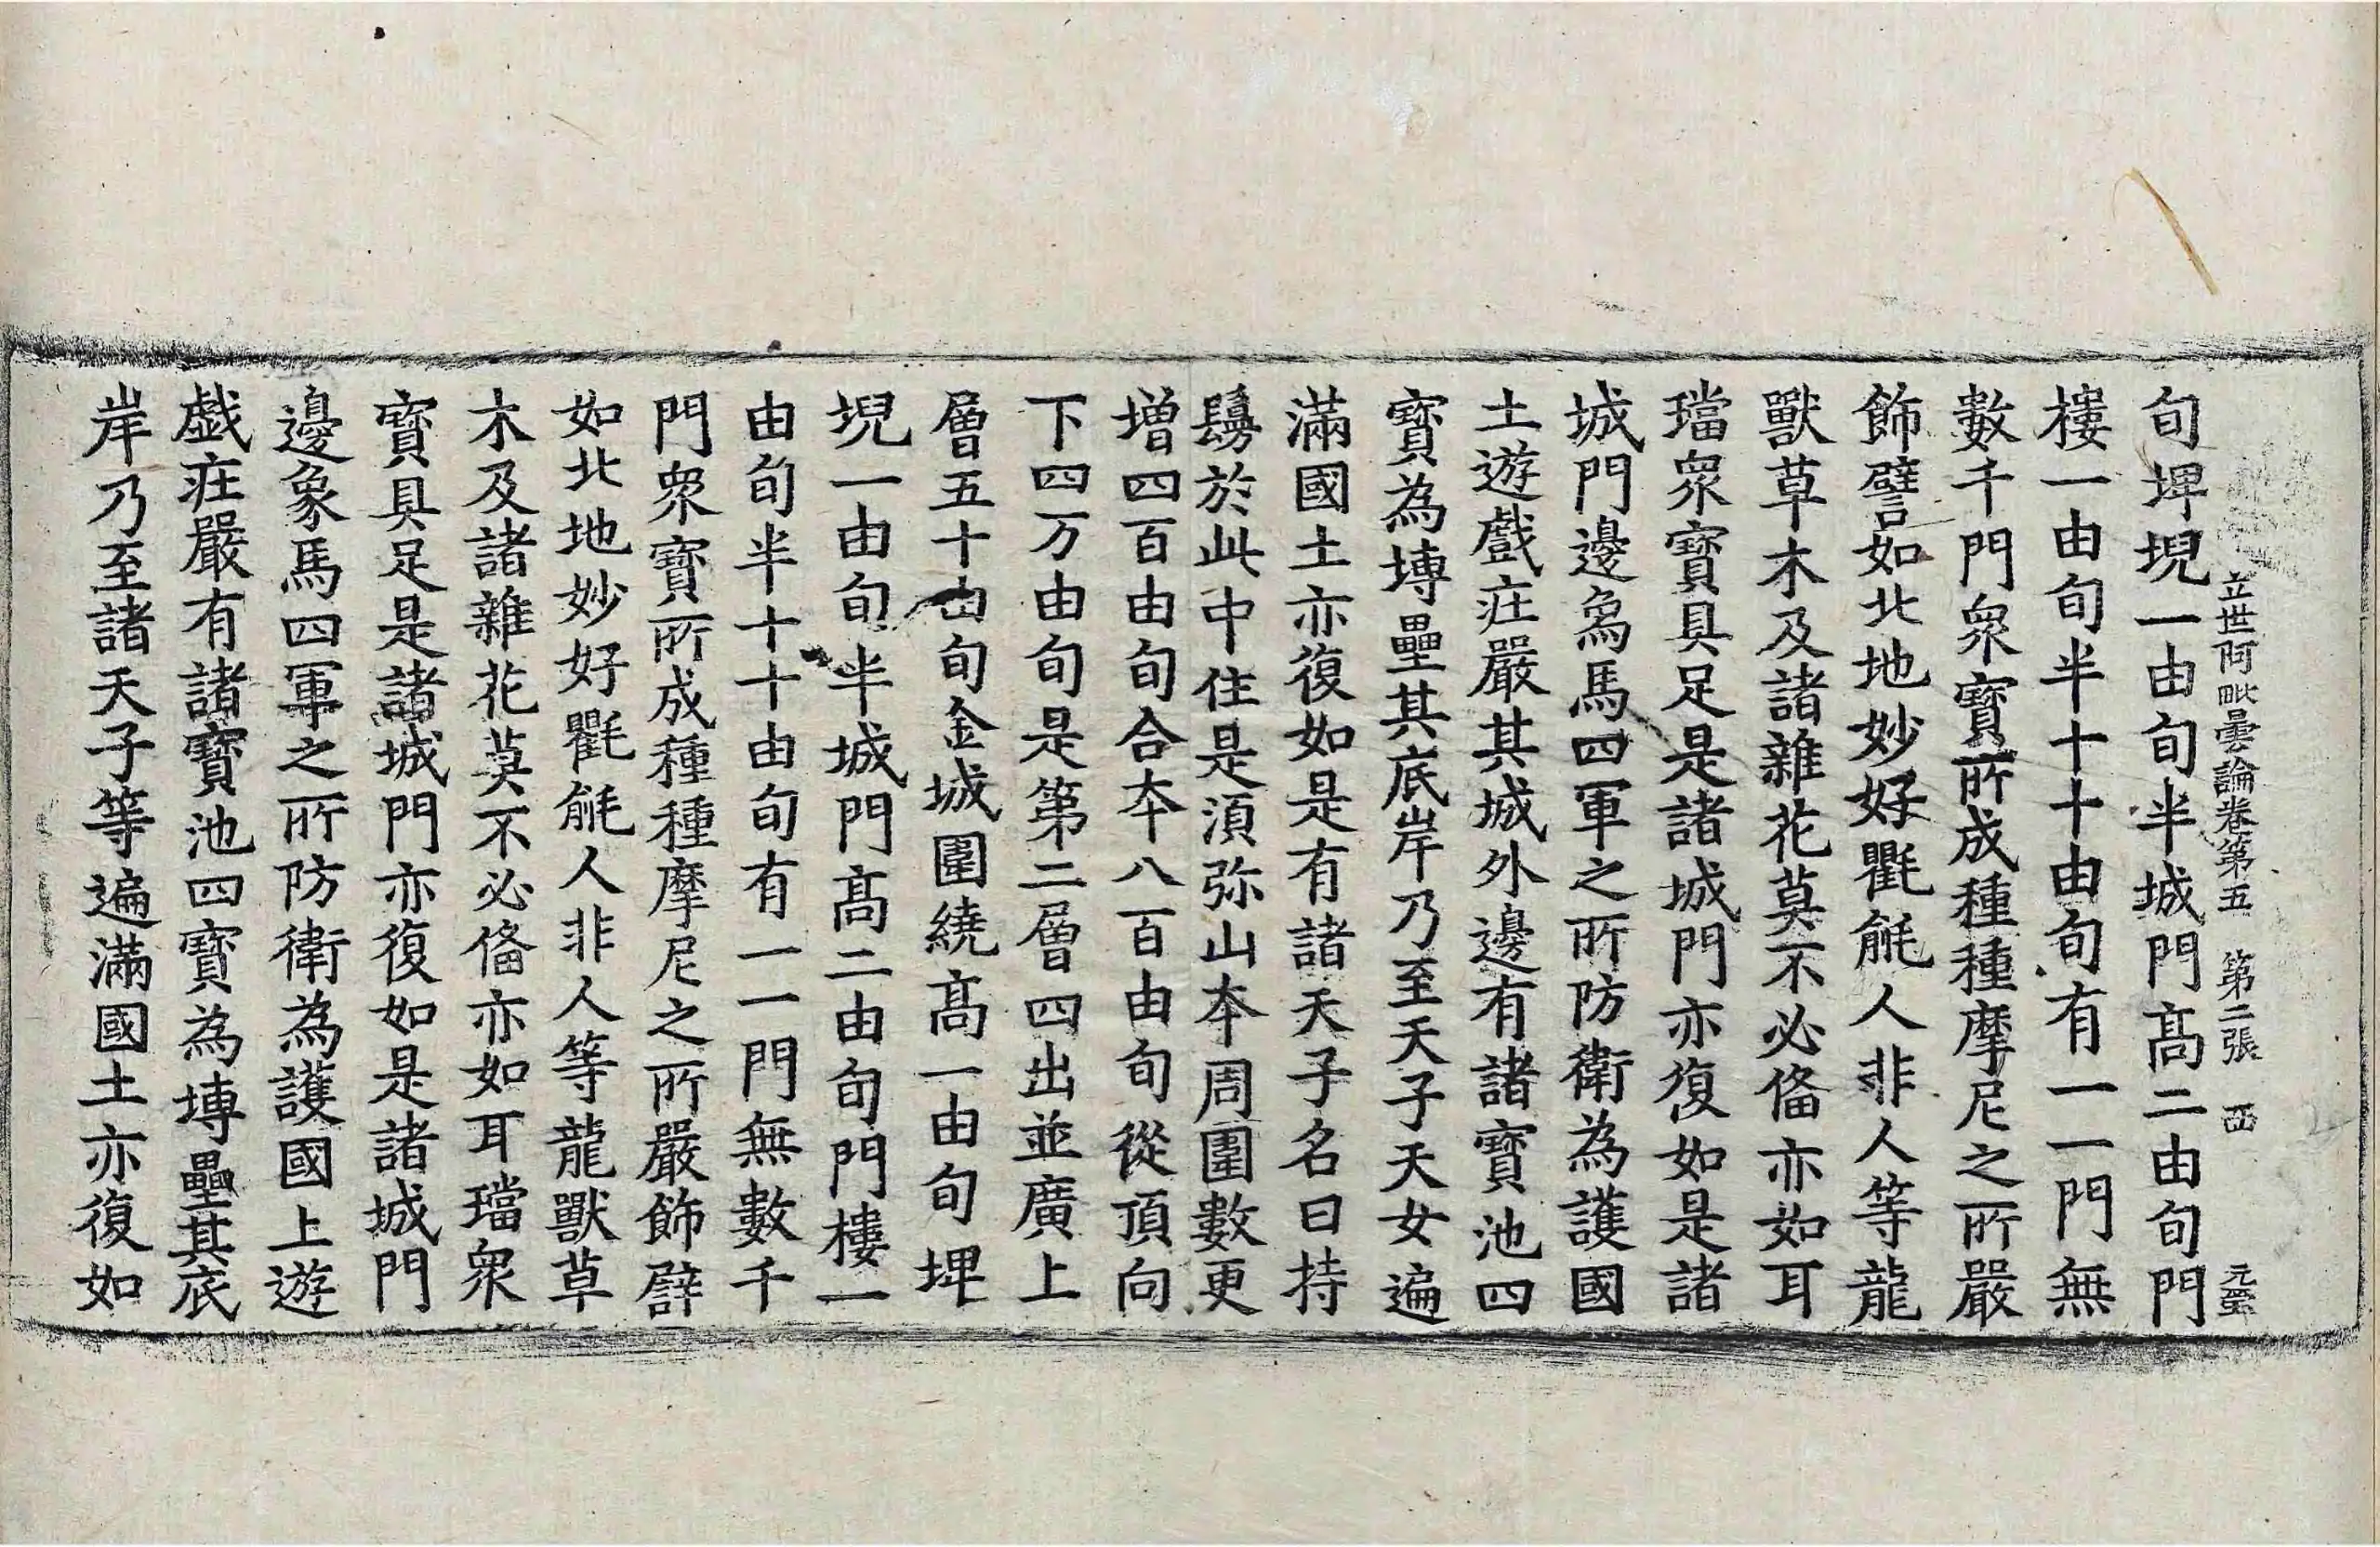 立世阿毗曇論卷第五　第二張　西
旬埤堄一由旬半城門髙二由旬門
樓一由旬半十十由旬有一一門無
數千門衆寳所成種種摩尼之所嚴
飾譬如北地妙好氍毹人非人等龍
獸草木及諸雜花莫不必俻亦如耳
璫衆寳具足是諸城門亦復如是諸
城門邊象馬四軍之所防衛為護國
土遊戲莊嚴其城外邊有諸寳池四
寳為塼壘其底岸乃至天子天女遍
滿國土亦復如是有諸天子名曰持
鬘於此中住是湏弥山本周圍數更
増四百由旬合本八百由旬從頂向
下四万由旬是第二層四出並廣上
層五十由旬金城圍繞髙一由旬埤
堄一由旬半城門髙二由旬門樓一
由旬半十十由旬有一一門無數千
門衆寳所成種種摩尼之所嚴飾譬
如北地妙好氍毹人非人等龍獸草
木及諸雜花莫不必俻亦如耳璫衆
寳具足是諸城門亦復如是諸城門
邊象馬四軍之所防衛為護國上遊
戯莊嚴有諸寳池四寳為塼壘其底
岸乃至諸天子等遍滿國土亦復如